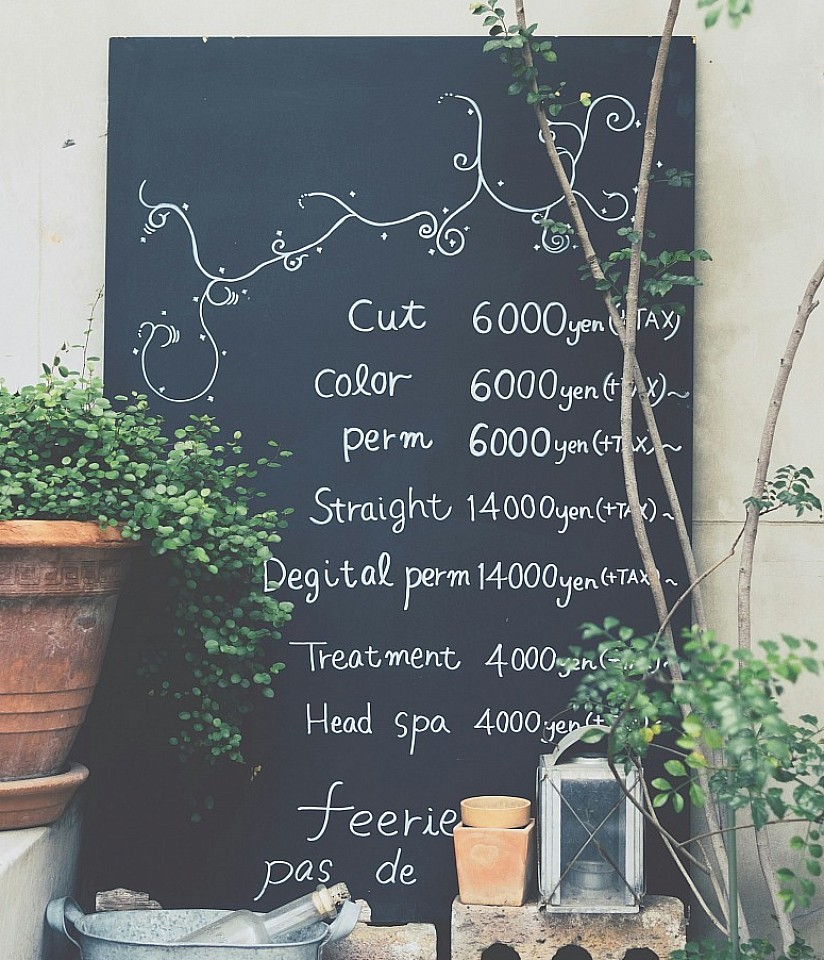 Cut 6000yen (+TAX)
color 6000yen (+TAX)~
perm 6000yen (+TAX)~
Straight 14000yen (+TAX)~
Degital perm 14000yen (+TAX)~
Treatment 4000yen
Head spa 4000yen
feerie
pas de